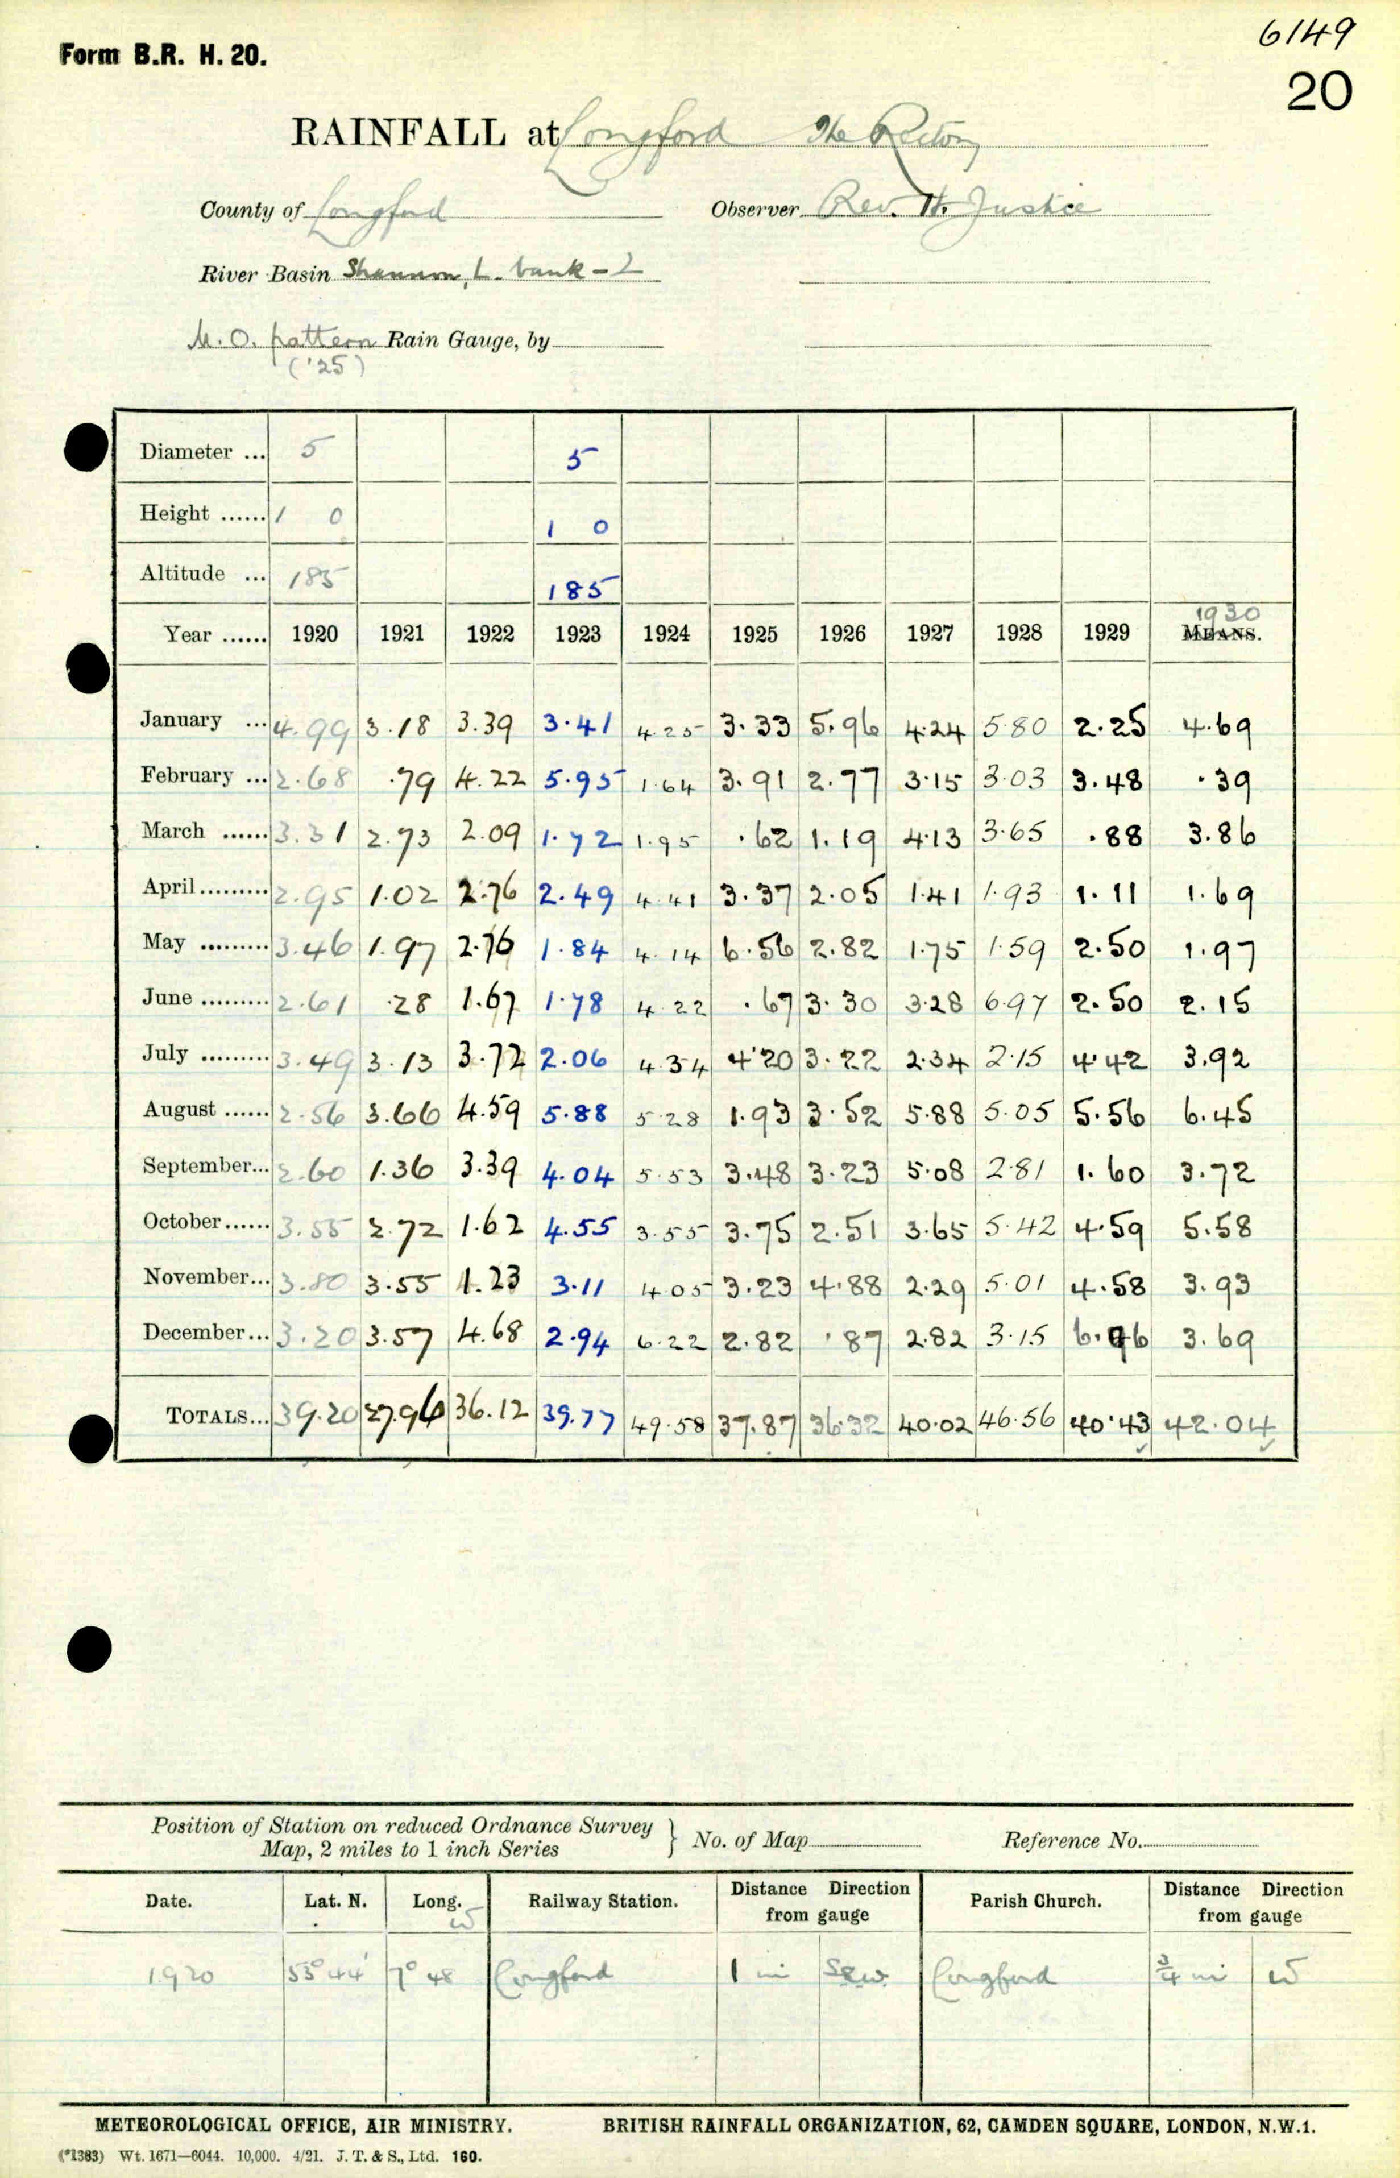 6149
Form B.R. H. 20.
20
RAINFALL at Longford The Rectory
County of Longford Observer Rev. H. Justice
River Basin Shannon, L. bank - 2
M.O. pattern Rain Gauge, by
('25)
Diameter ... 5 5
Height ...... 1 0 1 0
Altitude ... 185 185
1930
Year ...... 1920 1921 1922 1923 1924 1925 1926 1927 1928 1929 MEANS.
January ... 4.99 3.18 3.39 3.41 4.25 3.33 5.96 4.24 5.80 2.25 4.69
February ... 2.68 .79 4.22 5.95 1.64 3.91 2.77 3.15 3.03 3.48 .39
March ...... 3.31 2.73 2.09 1.72 1.95 .62 1.19 4.13 3.65 .88 3.86
April ......... 2.95 1.02 2.76 2.49 4.41 3.37 2.05 1.41 1.93 1.11 1.69
May ......... 3.46 1.97 2.76 1.84 4.14 6.56 2.82 1.75 1.59 2.50 1.97
June ......... 2.61 .28 1.67 1.78 4.22 .67 3.30 3.28 6.97 2.50 2.15
July ......... 3.49 3.13 3.72 2.06 4.34 4.20 3.22 2.34 2.15 4.42 3.92
August ...... 2.56 3.66 4.59 5.88 5.28 1.93 3.52 5.88 5.05 5.56 6.45
September... 2.60 1.36 3.39 4.04 5.53 3.48 3.23 5.08 2.81 1.60 3.72
October...... 3.55 2.72 1.62 4.55 3.55 3.75 2.51 3.65 5.42 4.59 5.58
November... 3.80 3.55 1.23 3.11 4.05 3.23 4.88 2.29 5.01 4.58 3.93
December... 3.20 3.57 4.68 2.94 6.22 2.82 .87 2.82 3.15 6.96 3.69
TOTALS... 39.20 27.96 36.12 39.77 49.58 37.87 36.32 40.02 46.56 40.43 42.04
Position of Station on reduced Ordnance Survey
Map, 2 miles to 1 inch Series } No. of Map Reference No.
Date. Lat. N. Long. W Railway Station. Distance Direction from gauge Parish Church. Distance Direction from gauge
1920 53° 44' 7° 48 Longford 1 mi SSW. Longford 3/4 mi W
METEOROLOGICAL OFFICE, AIR MINISTRY. BRITISH RAINFALL ORGANIZATION, 62, CAMDEN SQUARE, LONDON, N.W.1.
(*1383) Wt. 1671—6044. 10,000. 4/21. J. T. & S., Ltd. 160.